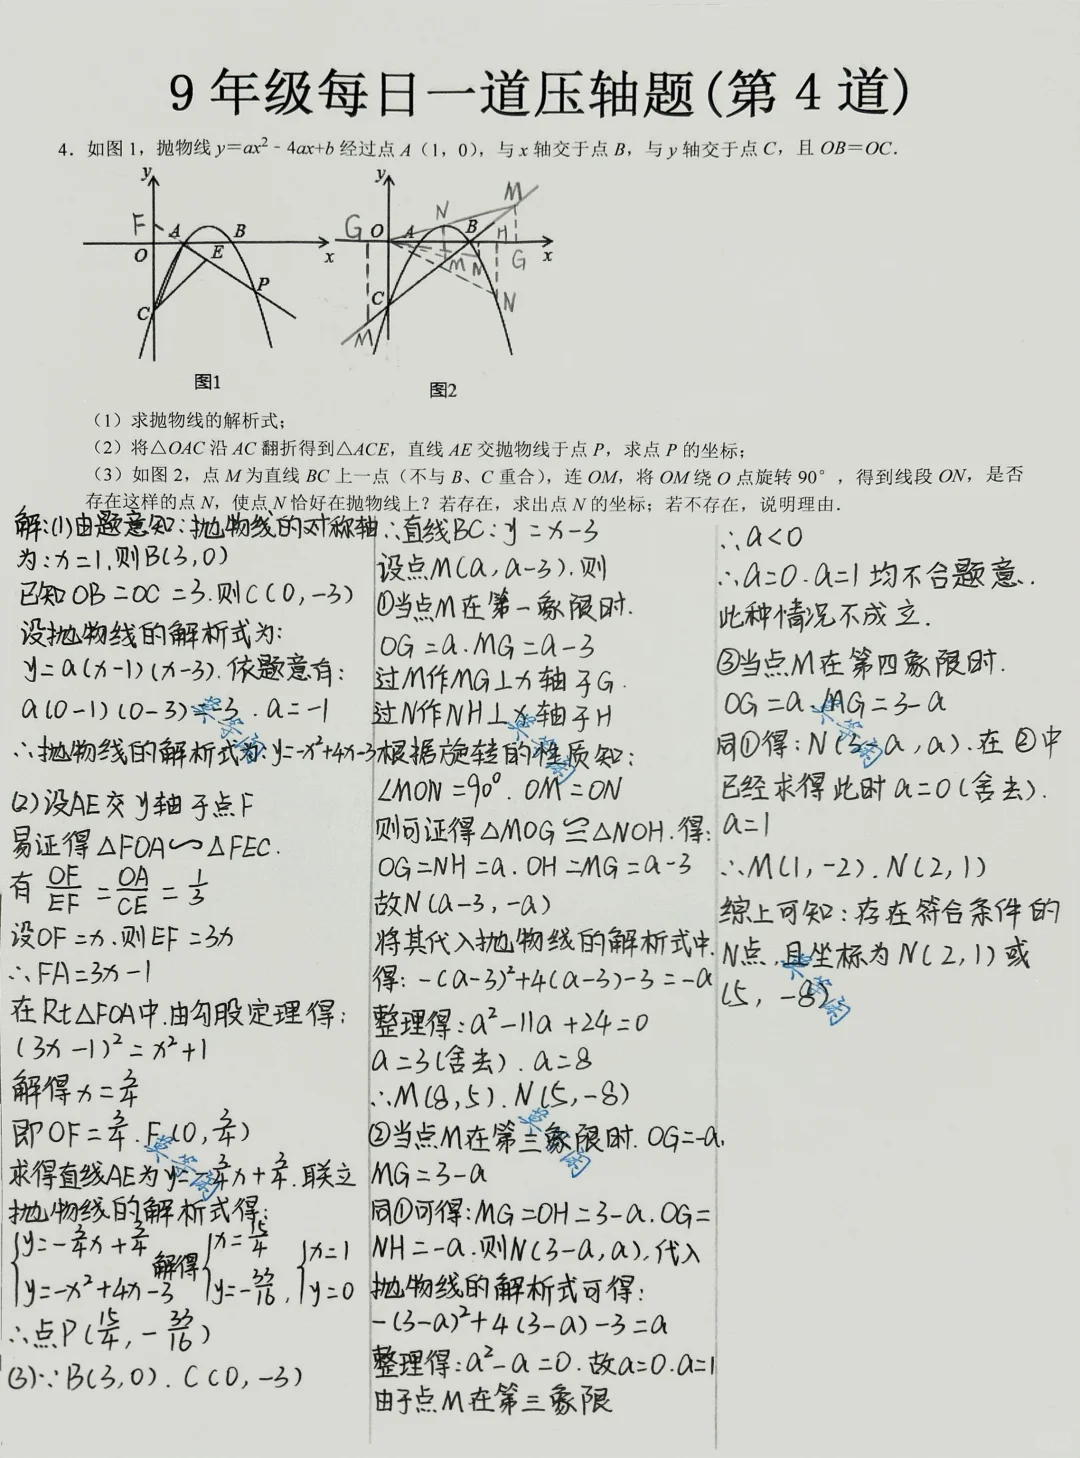 9年级每日一道压轴题(第4道)
4. 如图1，抛物线y=ax²﹣4ax+b经过点A（1，0），与x轴交于点B，与y轴交于点C，且OB=OC．
y
F
A
B
O
E
x
P
C
图1
y
M
N
G
O
A
B
H
M
N
G
x
C
N
M
图2
（1）求抛物线的解析式；
（2）将△OAC沿AC翻折得到△ACE，直线AE交抛物线于点P，求点P的坐标；
（3）如图2，点M为直线BC上一点（不与B、C重合），连OM，将OM绕O点旋转90°，得到线段ON，是否
存在这样的点N，使点N恰好在抛物线上？若存在，求出点N的坐标；若不存在，说明理由．
解:(1)由题意知:抛物线的对称轴
为:x=1,则B(3,0)
已知OB=OC=3.则C(0,-3)
设抛物线的解析式为:
y=a(x-1)(x-3).依题意有:
a(0-1)(0-3)=-3.a=-1
∴抛物线的解析式为:y=-x²+4x-3
(2)设AE交y轴于点F
易证得△FOA∽△FEC.
有 OF/EF = OA/CE = 1/3
设OF=x.则EF=3x
∴FA=3x-1
在Rt△FOA中.由勾股定理得:
(3x-1)²=x²+1
解得x=3/4
即OF=3/4.F(0,3/4)
求得直线AE为y=-3/4x+3/4.联立
抛物线的解析式得:
{y=-3/4x+3/4 {x=15/4 {x=1
{y=-x²+4x-3 解得 {y=-33/16, {y=0
∴点P(15/4,-33/16)
(3)∵B(3,0).C(0,-3)
∴直线BC:y=x-3
设点M(a,a-3).则
①当点M在第一象限时.
OG=a.MG=a-3
过M作MG⊥x轴于G.
过N作NH⊥x轴于H
根据旋转的性质知:
∠MON=90°.OM=ON
则可证得△MOG≌△NOH.得:
OG=NH=a.OH=MG=a-3
故N(a-3,-a)
将其代入抛物线的解析式中.
得:-(a-3)²+4(a-3)-3=-a
整理得:a²-11a+24=0
a=3(舍去).a=8
∴M(8,5).N(5,-8)
②当点M在第三象限时.OG=-a,
MG=3-a
同①可得:MG=OH=3-a.OG=
NH=-a.则N(3-a,a),代入
抛物线的解析式可得:
-(3-a)²+4(3-a)-3=a
整理得:a²-a=0.故a=0.a=1
由于点M在第三象限
∴a<0
∴a=0.a=1均不合题意.
此种情况不成立.
③当点M在第四象限时.
OG=a.MG=3-a
同①得:N(3-a,a).在②中
已经求得此时a=0(舍去).
a=1
∴M(1,-2).N(2,1)
综上可知:存在符合条件的
N点,且坐标为N(2,1)或
(5,-8)